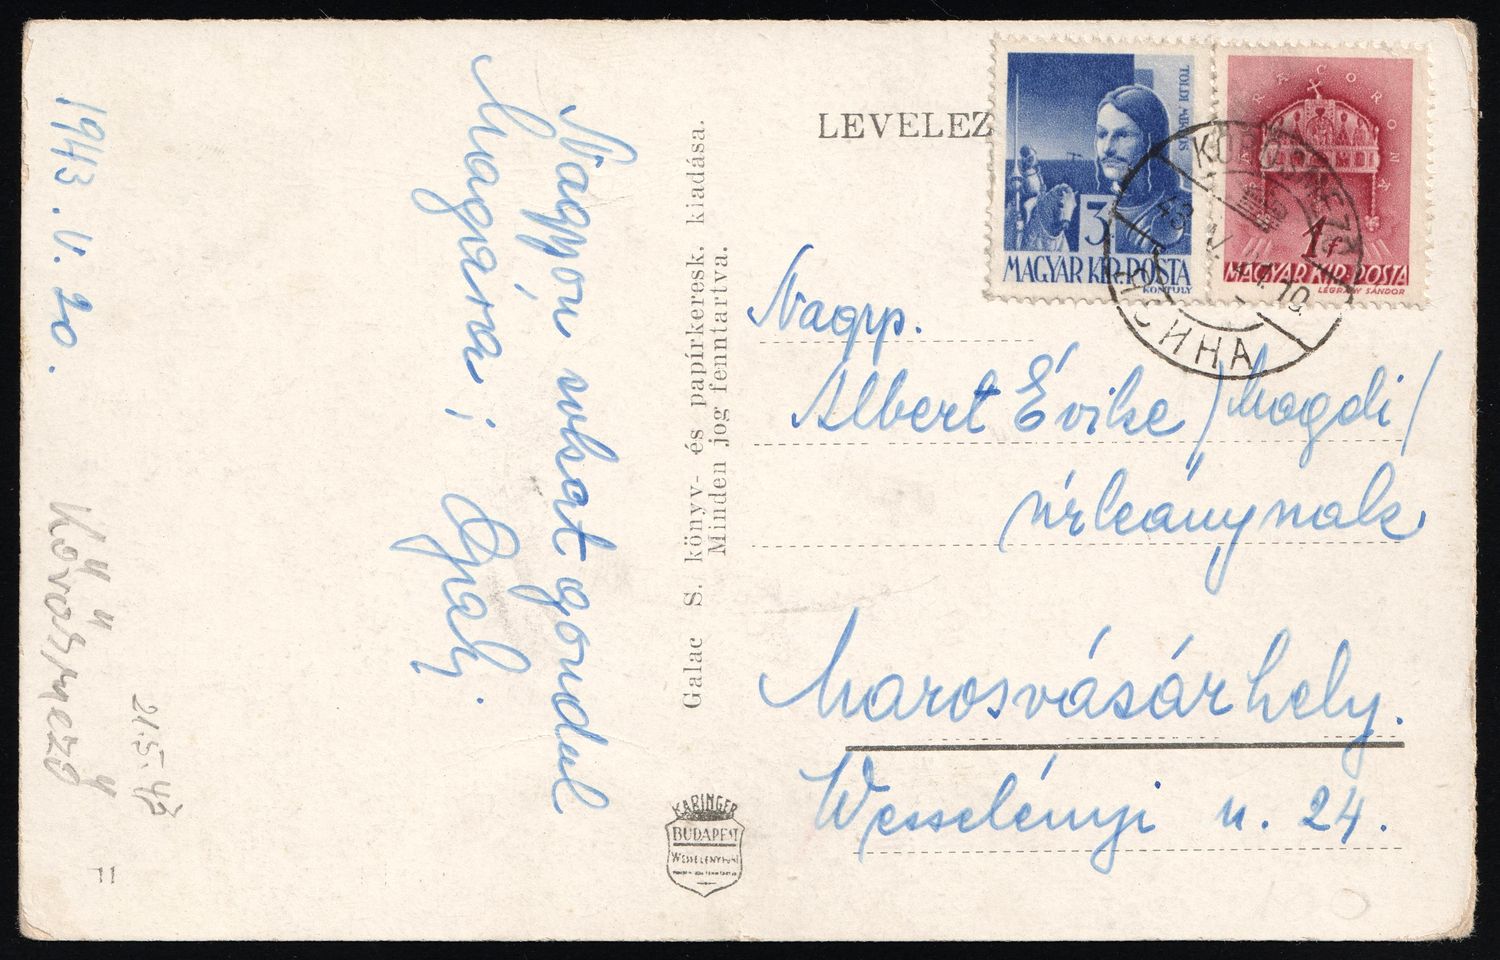 LEVELEZ
TOLDI MIKLÓS
3
MAGYAR KIR. POSTA
KONTULY
SACRA CORONA
1f
MAGYAR KIR. POSTA
LÉGRÁDY SÁNDOR
KŐRÖSMEZŐ
43 V. 10.
ЯСИНА
Nagyon sokat gondul
Magára; Gyali.
1943. V. 20.
Kőrösmező
21.5.43
11
Galac S. könyv- és papírkeresk. kiadása.
Minden jog fenntartva.
KARINGER
BUDAPEST
WESSELÉNYI
Nagys.
Albert Évike /Magdi/
úrleánynak
Marosvásárhely.
Wesselényi u. 24.